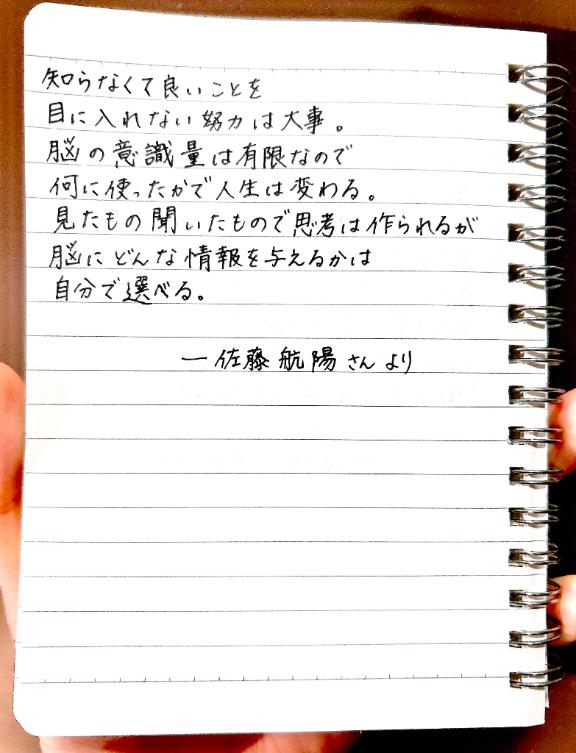 知らなくて良いことを
目に入れない努力は大事。
脳の意識量は有限なので
何に使ったかで人生は変わる。
見たもの聞いたもので思考は作られるが
脳にどんな情報を与えるかは
自分で選べる。
ー佐藤航陽さんより